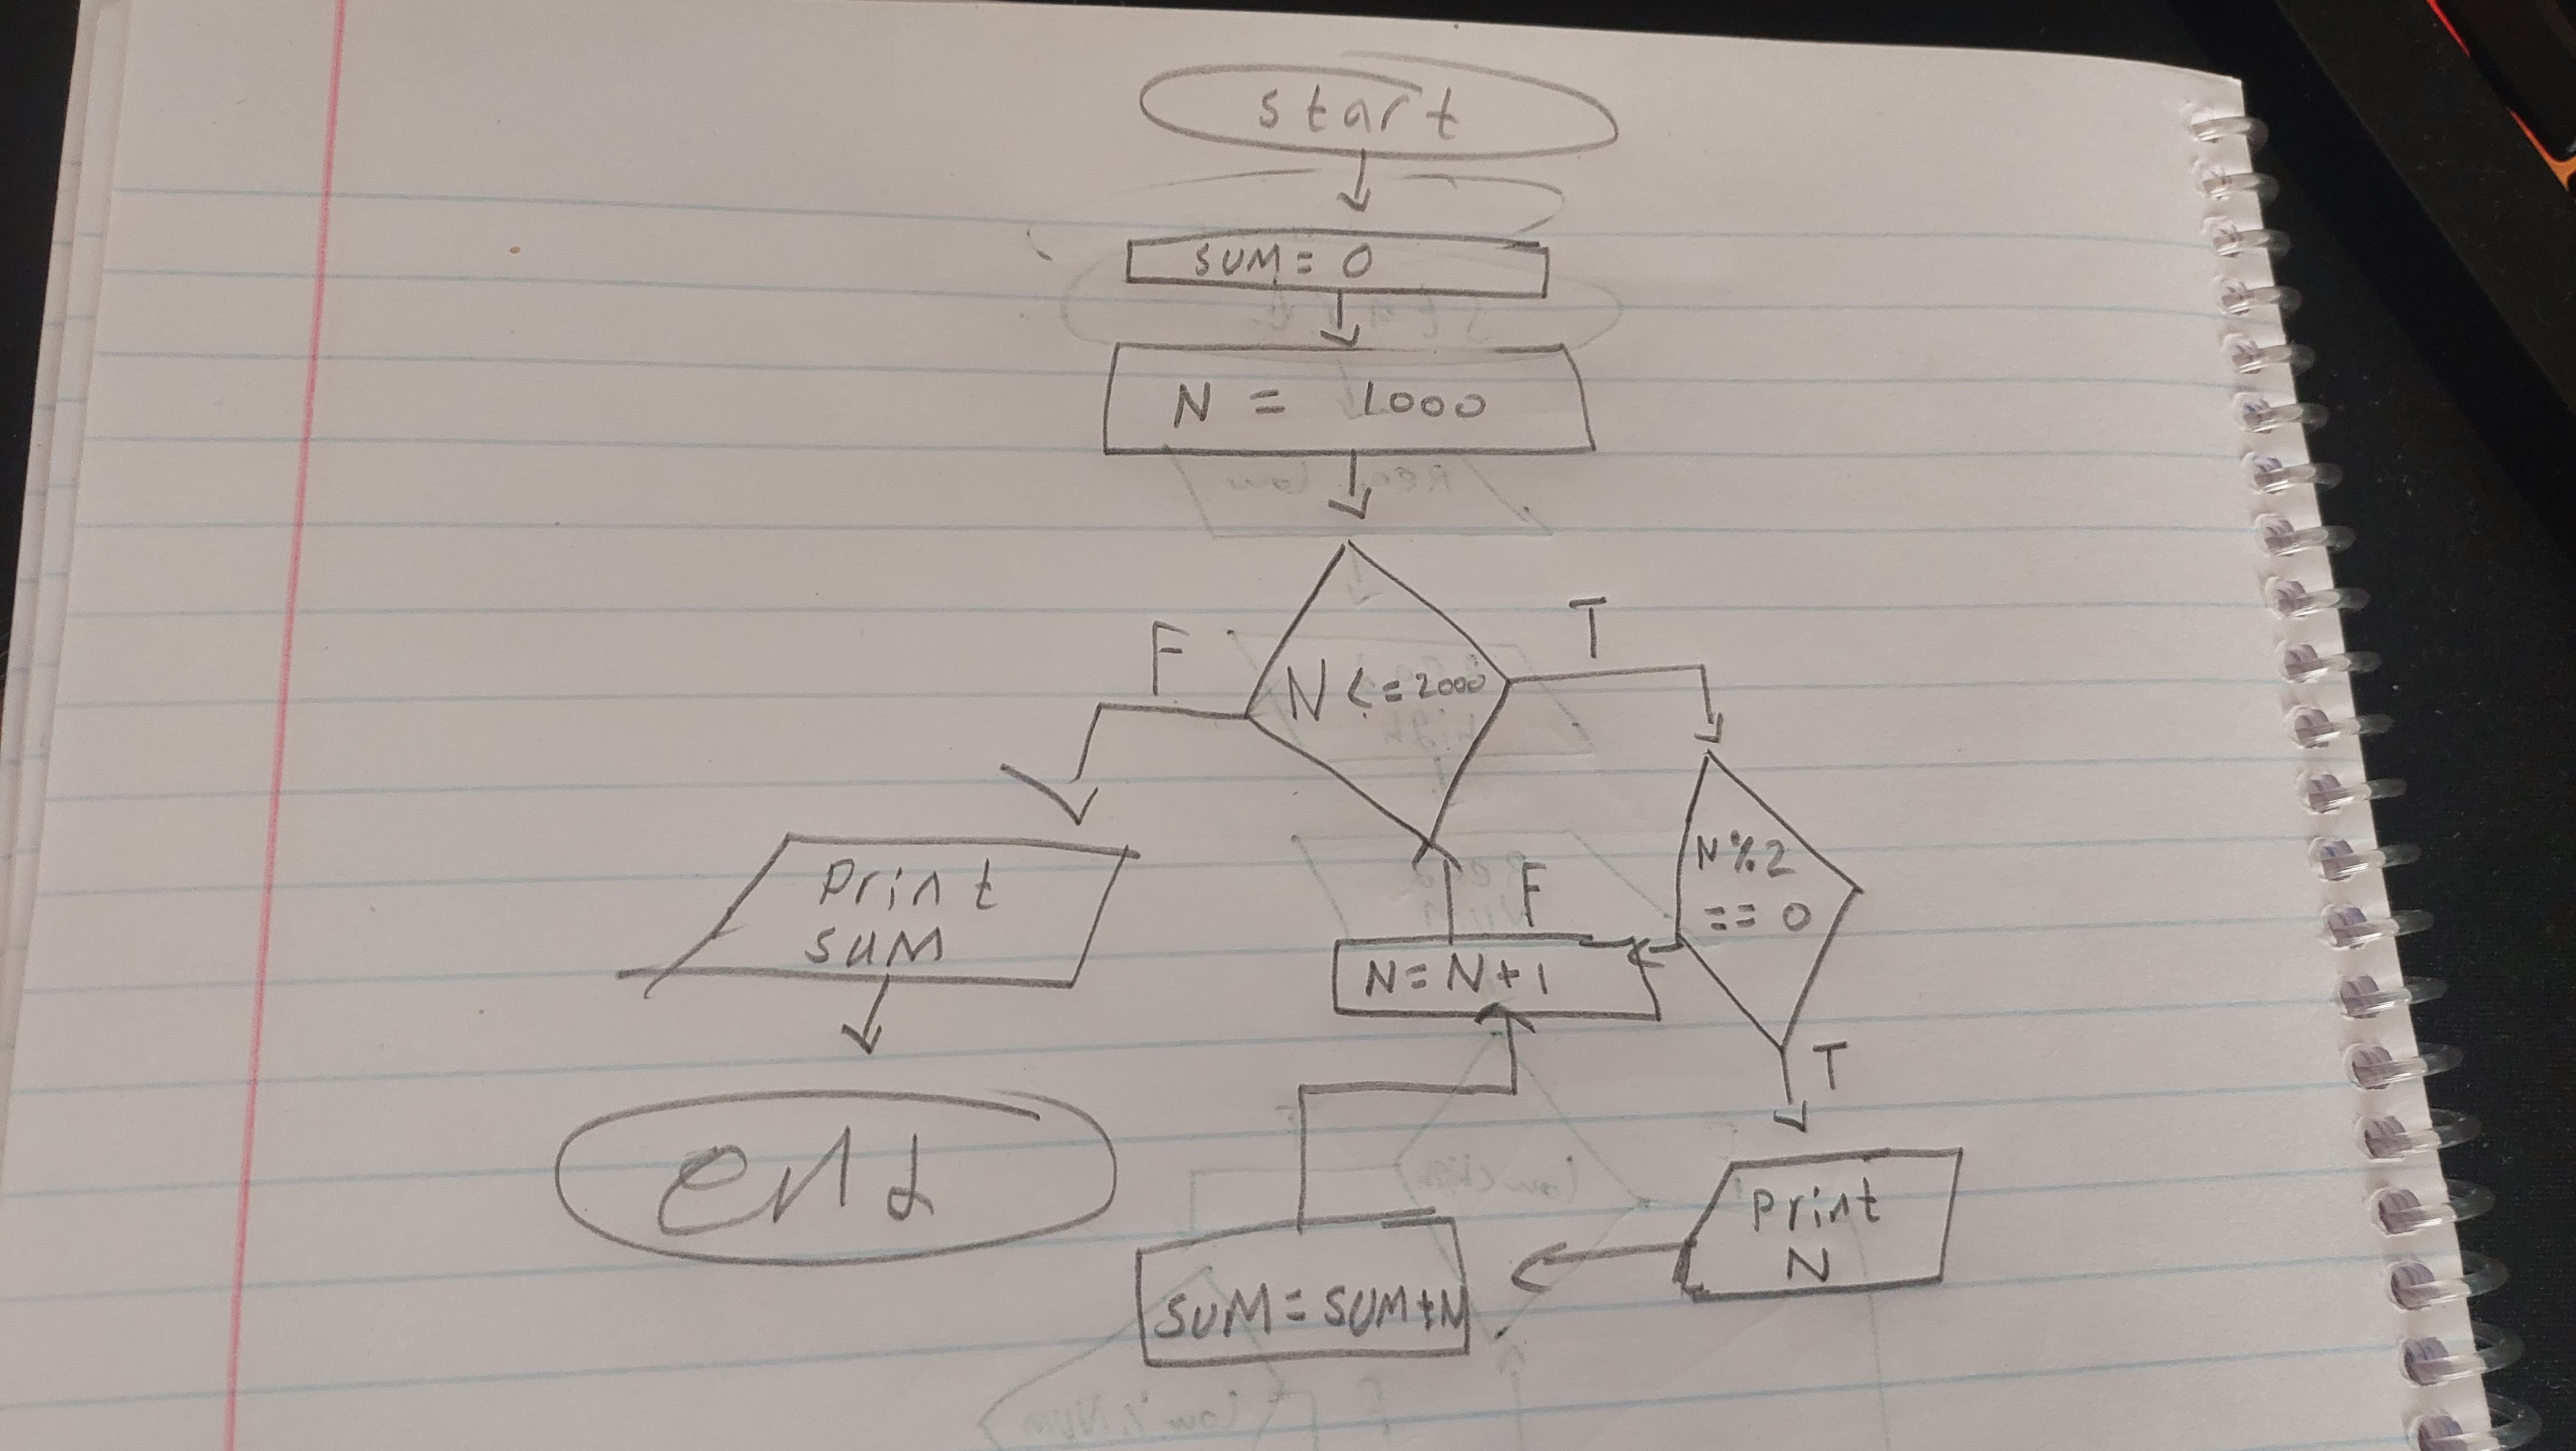 start
SUM = 0
N = 1000
N <= 2000
F
T
Print
SUM
end
N % 2
== 0
F
N = N + 1
T
Print
N
SUM = SUM + N